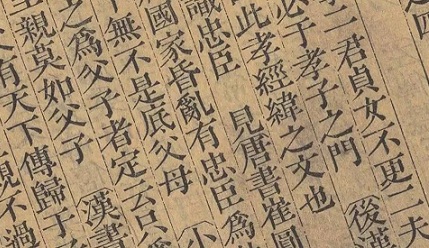 之四
二君貞女不更二夫
必于孝子之門 〔後漢
此孝經緯之文也
識忠臣 見唐書崔圓
國家昏亂有忠臣為
下無不是底父母 〔小
之為父子者定云只
至親莫如父子 〔漢書
有天下傳歸于子
親不過